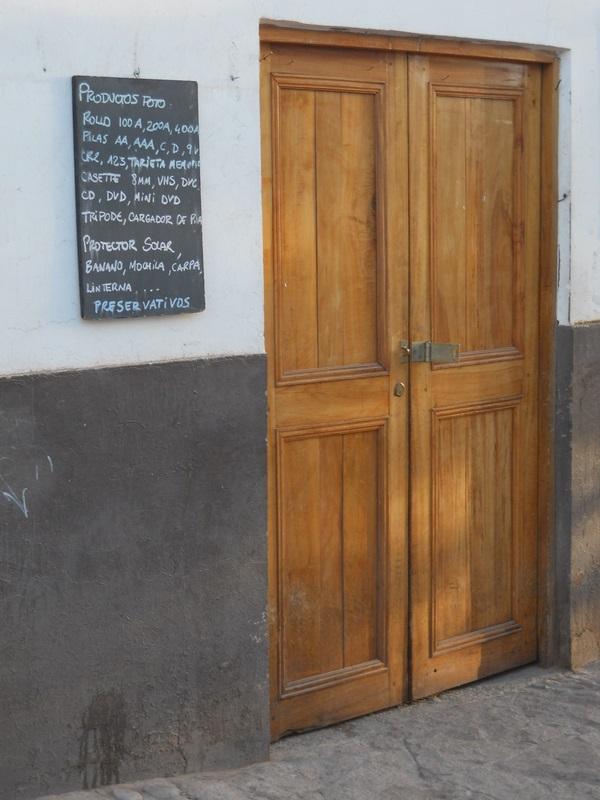 PRODUCTOS FOTO.
ROLLO 100A, 200A, 400A
PILAS AA, AAA, C, D, 9V
CR2, 123, TARJETA MEMORIA
CASETTE 8MM, VHS, DVC,
CD, DVD, MINI DVD
TRIPODE, CARGADOR DE PILA
PROTECTOR SOLAR,
BANANO, MOCHILA, CARPA,
LINTERNA, ...
PRESERVATIVOS